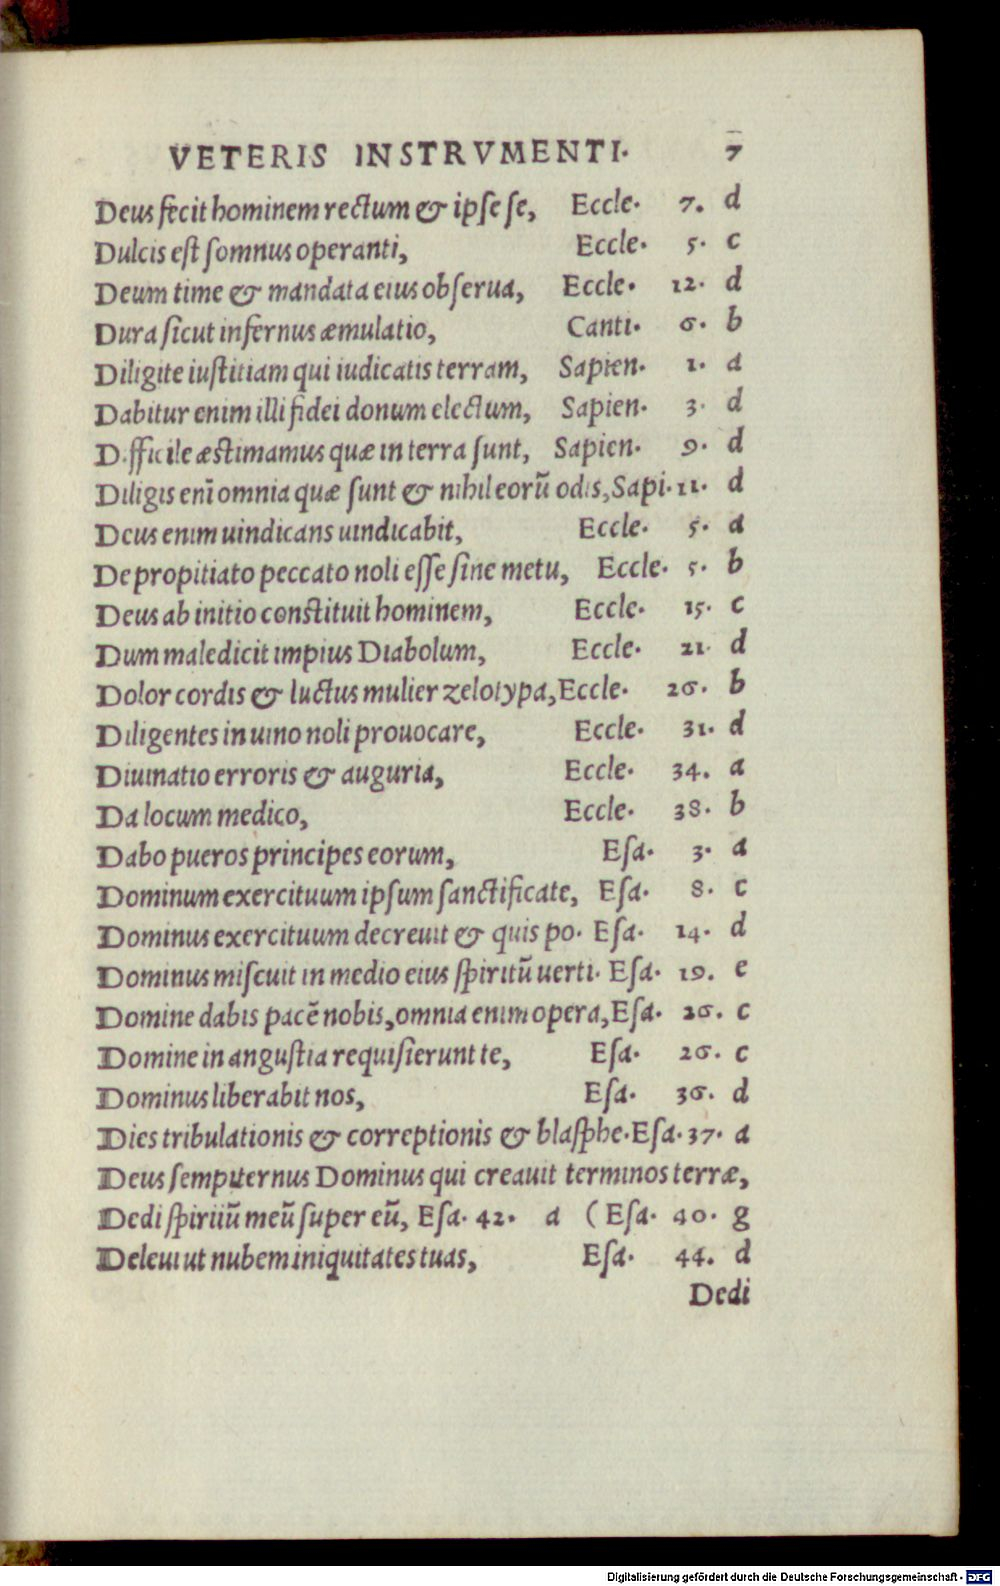 VETERIS INSTRVMENTI. 7
Deus fecit hominem rectum & ipse se, Eccle. 7. d
Dulcis est somnus operanti, Eccle. 5. c
Deum time & mandata eius obserua, Eccle. 12. d
Dura sicut infernus æmulatio, Canti. 6. b
Diligite iustitiam qui iudicatis terram, Sapien. 1. a
Dabitur enim illi fidei donum electum, Sapien. 3. d
Difficile æstimamus quæ in terra sunt, Sapien. 9. d
Diligis enī omnia quæ sunt & nihil eorū odis, Sapi. 11. d
Deus enim uindicans uindicabit, Eccle. 5. a
De propitiato peccato noli esse sine metu, Eccle. 5. b
Deus ab initio constituit hominem, Eccle. 15. c
Dum maledicit impius Diabolum, Eccle. 21. d
Dolor cordis & luctus mulier zelotypa, Eccle. 26. b
Diligentes in uino noli prouocare, Eccle. 31. d
Diuinatio erroris & auguria, Eccle. 34. a
Da locum medico, Eccle. 38. b
Dabo pueros principes eorum, Esa. 3. a
Dominum exercituum ipsum sanctificate, Esa. 8. c
Dominus exercituum decreuit & quis po. Esa. 14. d
Dominus miscuit in medio eius spiritū uerti. Esa. 19. e
Domine dabis pacē nobis, omnia enim opera, Esa. 26. c
Domine in angustia requisierunt te, Esa. 26. c
Dominus liberabit nos, Esa. 36. d
Dies tribulationis & correptionis & blasphe. Esa. 37. a
Deus sempiternus Dominus qui creauit terminos terræ,
Dedi spiritū meū super eū, Esa. 42. a ( Esa. 40. g
Deleui ut nubem iniquitates tuas, Esa. 44. d
Dedi
Digitalisierung gefördert durch die Deutsche Forschungsgemeinschaft - DFG